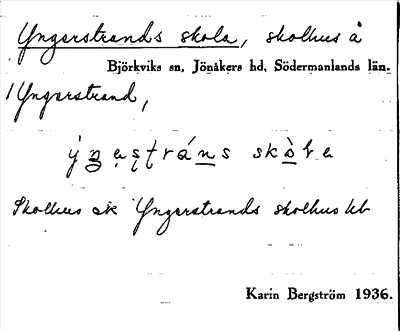 Yngerstrands skola, skolhus å
Björkviks sn, Jönåkers hd, Södermanlands län.
/ Yngerstrand,
Skolhus ek Yngerstrands skolhus kb
Karin Bergström 1936.